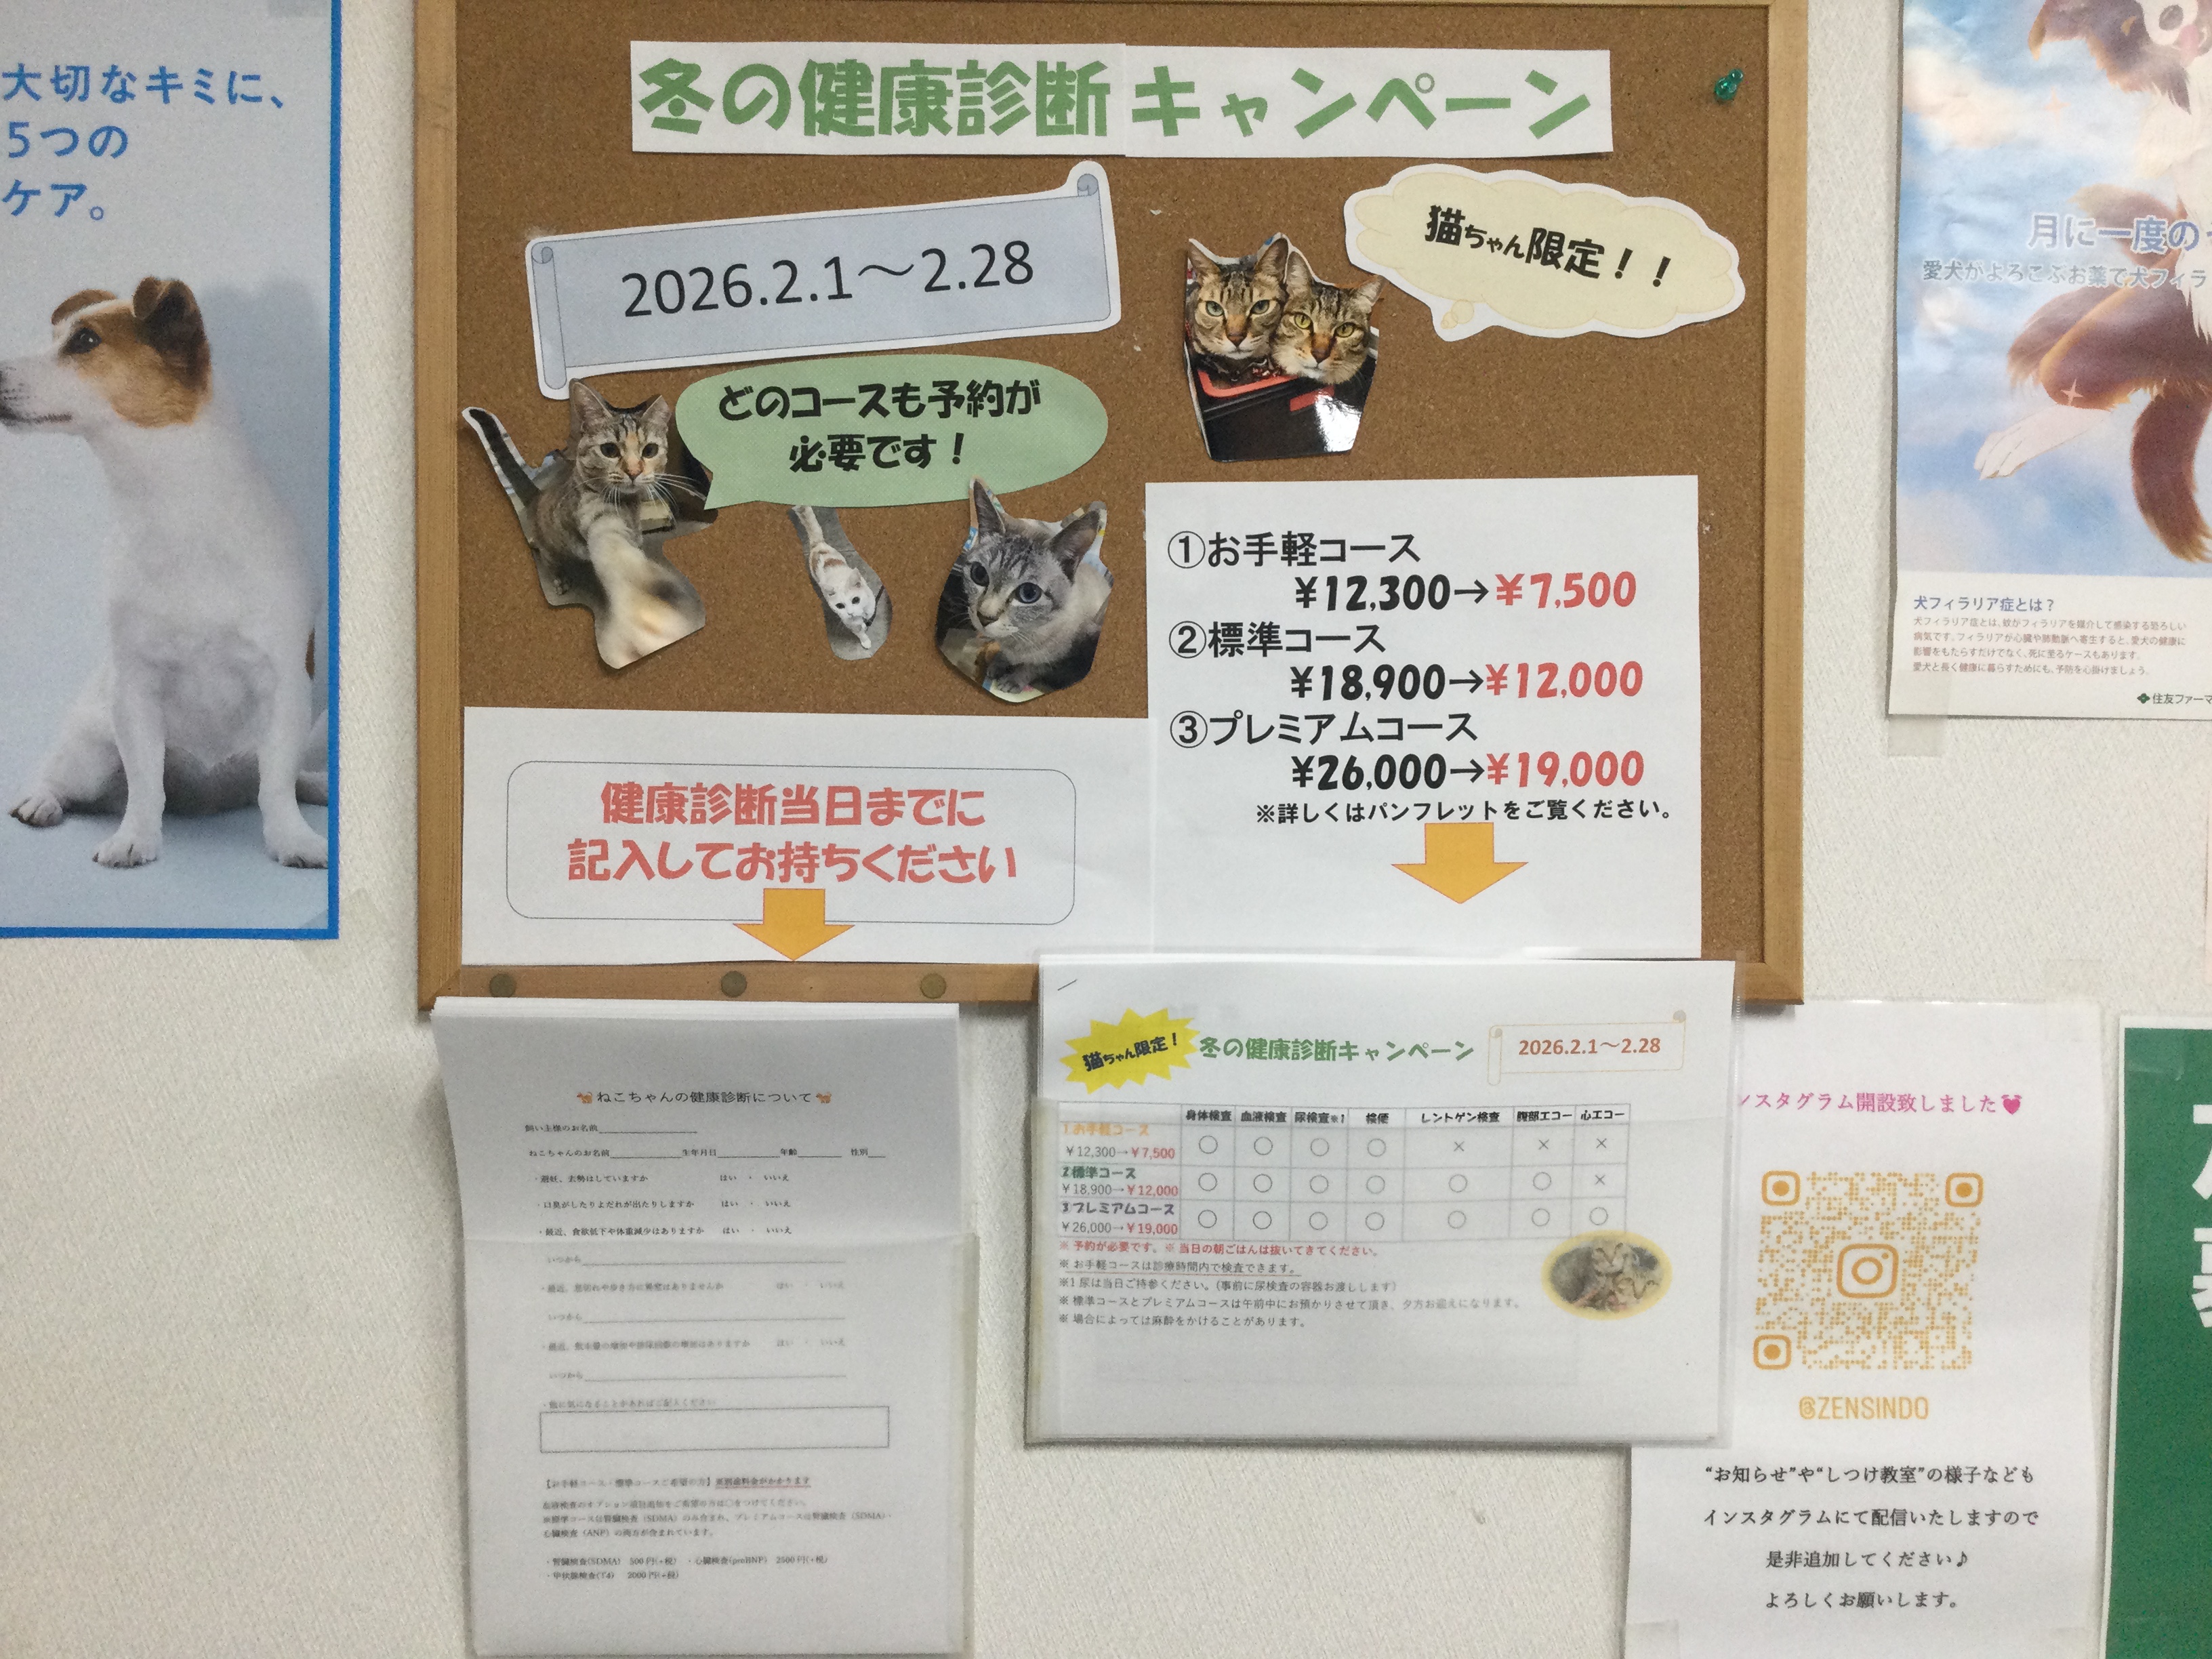 大切なキミに、
5つの
ケア。
冬の健康診断キャンペーン
2026.2.1〜2.28
猫ちゃん限定！！
どのコースも予約が
必要です！
①お手軽コース
¥12,300→¥7,500
②標準コース
¥18,900→¥12,000
③プレミアムコース
¥26,000→¥19,000
※詳しくはパンフレットをご覧ください。
健康診断当日までに
記入してお持ちください
月に一度の
愛犬がよろこぶお薬で犬フィラ
犬フィラリア症とは？
犬フィラリア症とは、蚊がフィラリアを媒介して感染する恐ろしい
病気です。フィラリアが心臓や肺動脈へ寄生すると、愛犬の健康に
影響をもたらすだけでなく、死に至るケースもあります。
愛犬と長く健康に暮らすためにも、予防を心掛けましょう。
住友ファーマ
ねこちゃんの健康診断について
飼い主様のお名前
ねこちゃんのお名前 生年月日 年齢 性別
・避妊、去勢はしていますか はい ・ いいえ
・口臭がしたりよだれが出たりしますか はい ・ いいえ
・最近、食欲低下や体重減少はありますか はい ・ いいえ
いつから
・最近、 歩き方に異常はありませんか はい ・ いいえ
いつから
・最近、飲水量の増加や排尿回数の増加はありますか はい ・ いいえ
いつから
・他に気になることがあればご記入ください
【お手軽コース・標準コースご希望の方】別途料金がかかります
血液検査のオプション項目追加をご希望の方は○をつけてください。
※標準コースは腎臓検査（SDMA）のみ含まれ、プレミアムコースは腎臓検査（SDMA）・
心臓検査（ANP）の両方が含まれています。
・腎臓検査(SDMA) 500円(+税) ・心臓検査(proBNP) 2500円(+税)
・甲状腺検査(T4) 2000円(+税)
猫ちゃん限定！ 冬の健康診断キャンペーン 2026.2.1〜2.28
身体検査 血液検査 尿検査※1 検便 レントゲン検査 腹部エコー 心エコー
1お手軽コース
¥12,300→¥7,500 ○ ○ ○ ○ × × ×
2標準コース
¥18,900→¥12,000 ○ ○ ○ ○ ○ ○ ×
3プレミアムコース
¥26,000→¥19,000 ○ ○ ○ ○ ○ ○ ○
※ 予約が必要です。※ 当日の朝ごはんは抜いてきてください。
※ お手軽コースは診療時間内で検査できます。
※1 尿は当日ご持参ください。(事前に尿検査の容器お渡しします)
※ 標準コースとプレミアムコースは午前中にお預かりさせて頂き、夕方お迎えになります。
※ 場合によっては麻酔をかけることがあります。
ンスタグラム開設致しました
@ZENSINDO
“お知らせ”や“しつけ教室”の様子なども
インスタグラムにて配信いたしますので
是非追加してください♪
よろしくお願いします。